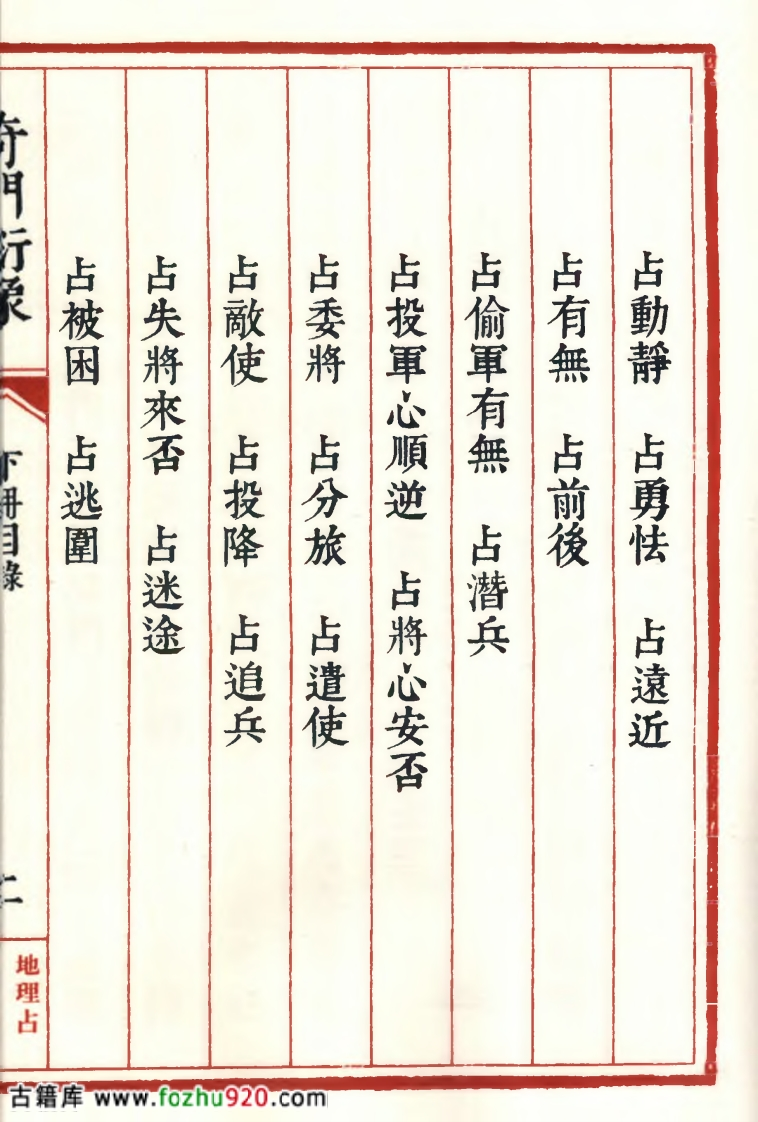 占動靜　占勇怯　占遠近
占有無　占前後
占偷軍有無　占潛兵
占投軍心順逆　占將心安否
占委將　占分旅　占遣使
占敵使　占投降　占追兵
占失將來否　占迷途
占被困　占逃圍
奇門衍象
下冊目錄
二
地理占
古籍库 www.fozhu920.com